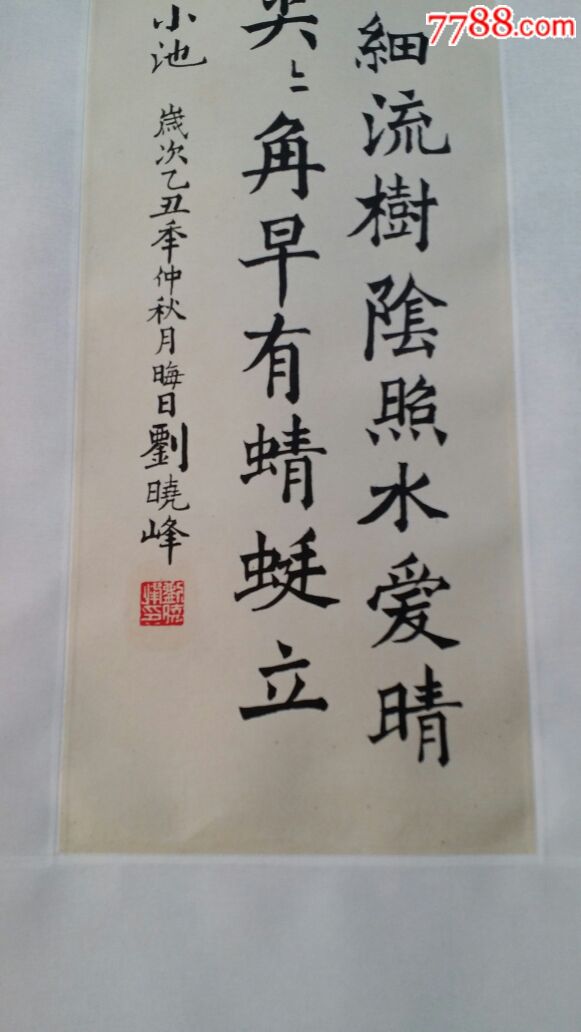 7788.com
細流樹陰照水爱晴
尖〻角早有蜻蜓立
小池 歲次乙丑季仲秋月晦日劉曉峰